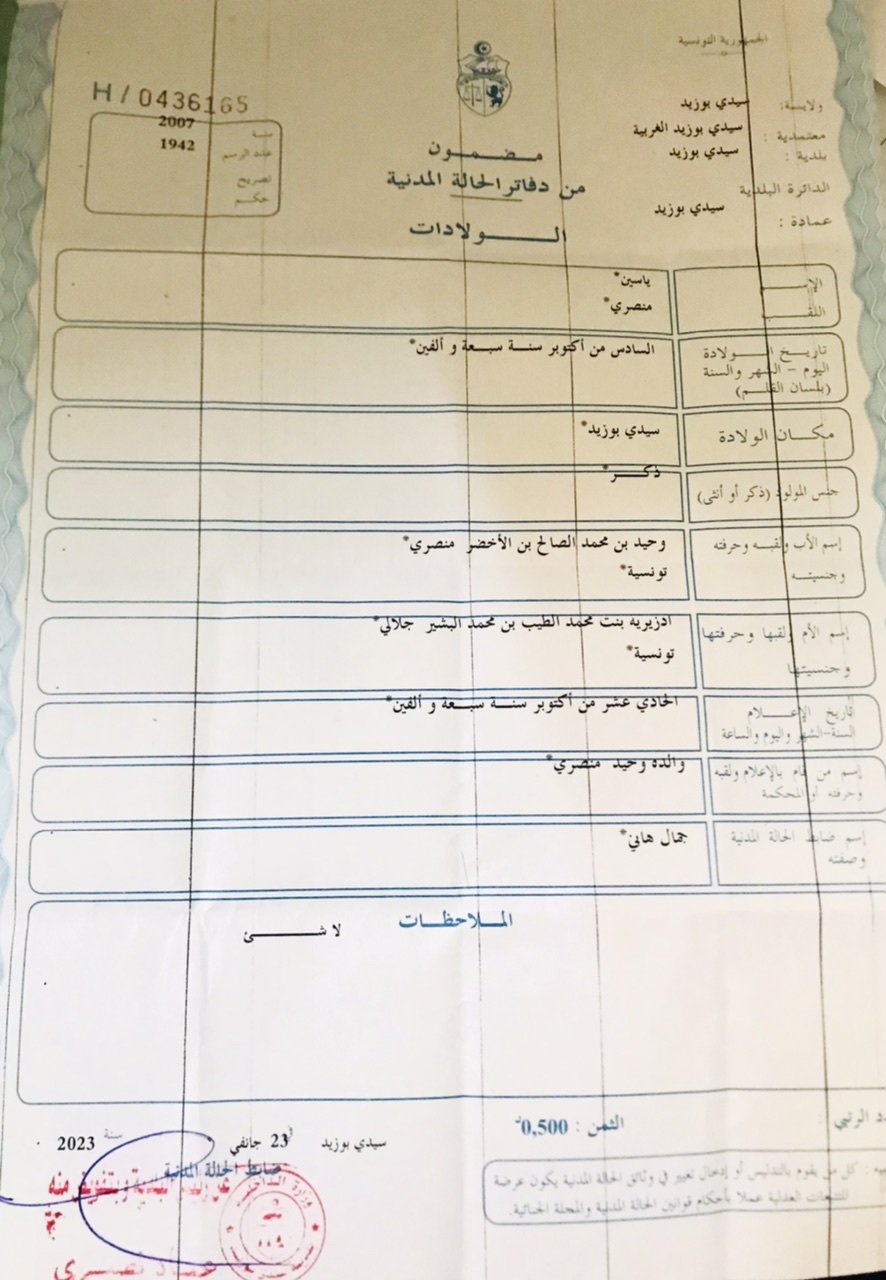 الجمهورية التونسية
H / 0436165
سنة 2007
عدد الرسم 1942
تصريح
حكم
ولاية: سيدي بوزيد
معتمدية : سيدي بوزيد الغربية
بلدية : سيدي بوزيد
الدائرة البلدية
عمادة : سيدي بوزيد
مضمون
من دفاتر الحالة المدنية
الولادات
الإسم ياسين*
اللقب منصري*
تاريخ الولادة السادس من أكتوبر سنة سبعة و ألفين*
اليوم – الشهر والسنة
(بلسان القلم)
مكان الولادة سيدي بوزيد*
جنس المولود (ذكر أو أنثى) ذكر*
إسم الأب ولقبه وحرفته وحيد بن محمد الصالح بن الأخضر منصري*
وجنسيته تونسية*
إسم الأم ولقبها وحرفتها بنت محمد الطيب بن محمد البشير جلالي*
وجنسيتها تونسية*
تاريخ الإعلام الحادي عشر من أكتوبر سنة سبعة و ألفين*
السنة-الشهر واليوم والساعة
إسم من قام بالإعلام ولقبه والده وحيد منصري*
وحرفته أو المحكمة
إسم ضابط الحالة المدنية جمال هاني*
وصفته
الملاحظات
لا شئ
الثمن : 0,500د
سيدي بوزيد 23 جانفي سنة 2023
ضابط الحالة المدنية
كل من يقوم بالتدليس أو إدخال تغيير في وثائق الحالة المدنية يكون عرضة
للتتبعات العدلية عملا بأحكام قوانين الحالة المدنية والمجلة الجنائية.
وزارة الداخلية